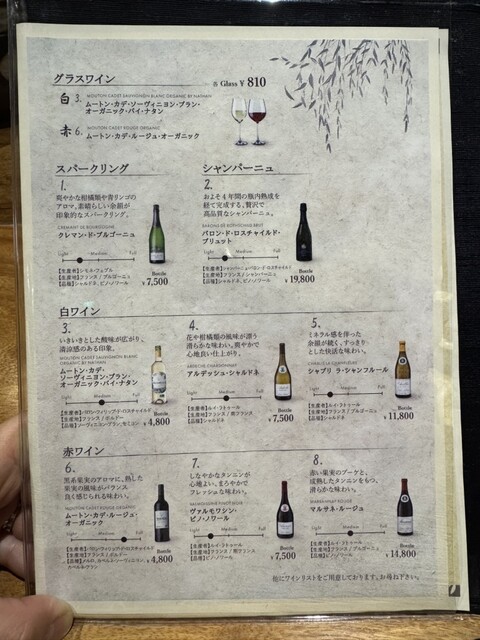 グラスワイン
各 Glass ¥ 810
白 3. MOUTON CADET SAUVIGNON BLANC ORGANIC BY NATHAN
ムートン・カデ・ソーヴィニヨン・ブラン・
オーガニック・バイ・ナタン
赤 6. MOUTON CADET ROUGE ORGANIC
ムートン・カデ・ルージュ・オーガニック
スパークリング
1.
爽やかな柑橘類や青リンゴの
アロマ。素晴らしい余韻が
印象的なスパークリング。
CREMANT DE BOURGOGNE
クレマン・ド・ブルゴーニュ
Light Medium Full
【生産者】シモネ・フェブル
【生産地】フランス / ブルゴーニュ
【品種】シャルドネ、ピノ・ノワール
Bottle
¥ 7,500
シャンパーニュ
2.
およそ4年間の瓶内熟成を
経て完成する、贅沢で
高品質なシャンパーニュ。
BARONS DE ROTHSCHILD BRUT
バロン・ド・ロスチャイルド・
ブリュット
Light Medium Full
【生産地】フランス / シャンパーニュ
【品種】シャルドネ、ピノ・ノワール
Bottle
¥ 19,800
白ワイン
3.
いきいきとした酸味が広がり、
清涼感のある印象。
MOUTON CADET SAUVIGNON BLANC
ORGANIC BY NATHAN
ムートン・カデ・
ソーヴィニヨン・ブラン・
オーガニック・バイ・ナタン
Light Medium Full
【生産者】バロン・フィリップ・ド・ロスチャイルド
【生産地】フランス / ボルドー
【品種】ソーヴィニヨン・ブラン、セミヨン
Bottle
¥ 4,800
4.
花や柑橘類の風味が漂う
滑らかな味わい。爽やかで
心地良い仕上がり。
ARDECHE CHARDONNAY
アルデッシュ・シャルドネ
Light Medium Full
【生産者】ルイ・ラトゥール
【生産地】フランス / 南フランス
【品種】シャルドネ
Bottle
¥ 7,500
5.
ミネラル感を伴った
余韻が続く、すっきり
とした快活な味わい。
CHABLIS LA CHANFLEURE
シャブリ ラ・シャンフルール
Light Medium Full
【生産者】ルイ・ラトゥール
【生産地】フランス / ブルゴーニュ
【品種】シャルドネ
Bottle
¥ 11,800
赤ワイン
6.
黒系果実のアロマに、熟した
果実の風味がバランス
良く感じられる味わい。
MOUTON CADET ROUGE ORGANIC
ムートン・カデ・ルージュ・
オーガニック
Light Medium Full
【生産者】バロン・フィリップ・ド・ロスチャイルド
【生産地】フランス / ボルドー
【品種】メルロ、カベルネ・ソーヴィニヨン、
カベルネ・フラン
Bottle
¥ 4,800
7.
しなやかなタンニンが
心地よい、まろやかで
フレッシュな味わい。
VALMOISSINE PINOT NOIR
ヴァルモワシン・
ピノ・ノワール
Light Medium Full
【生産者】ルイ・ラトゥール
【生産地】フランス / 南フランス
【品種】ピノ・ノワール
Bottle
¥ 7,500
8.
赤い果実のブーケと、
成熟したタンニンをもつ、
滑らかな味わい。
MARSANNAY ROUGE
マルサネ・ルージュ
Light Medium Full
【生産者】ルイ・ラトゥール
【生産地】フランス / ブルゴーニュ
【品種】ピノ・ノワール
Bottle
¥ 14,800
他にワインリストをご用意しております。お尋ね下さい。